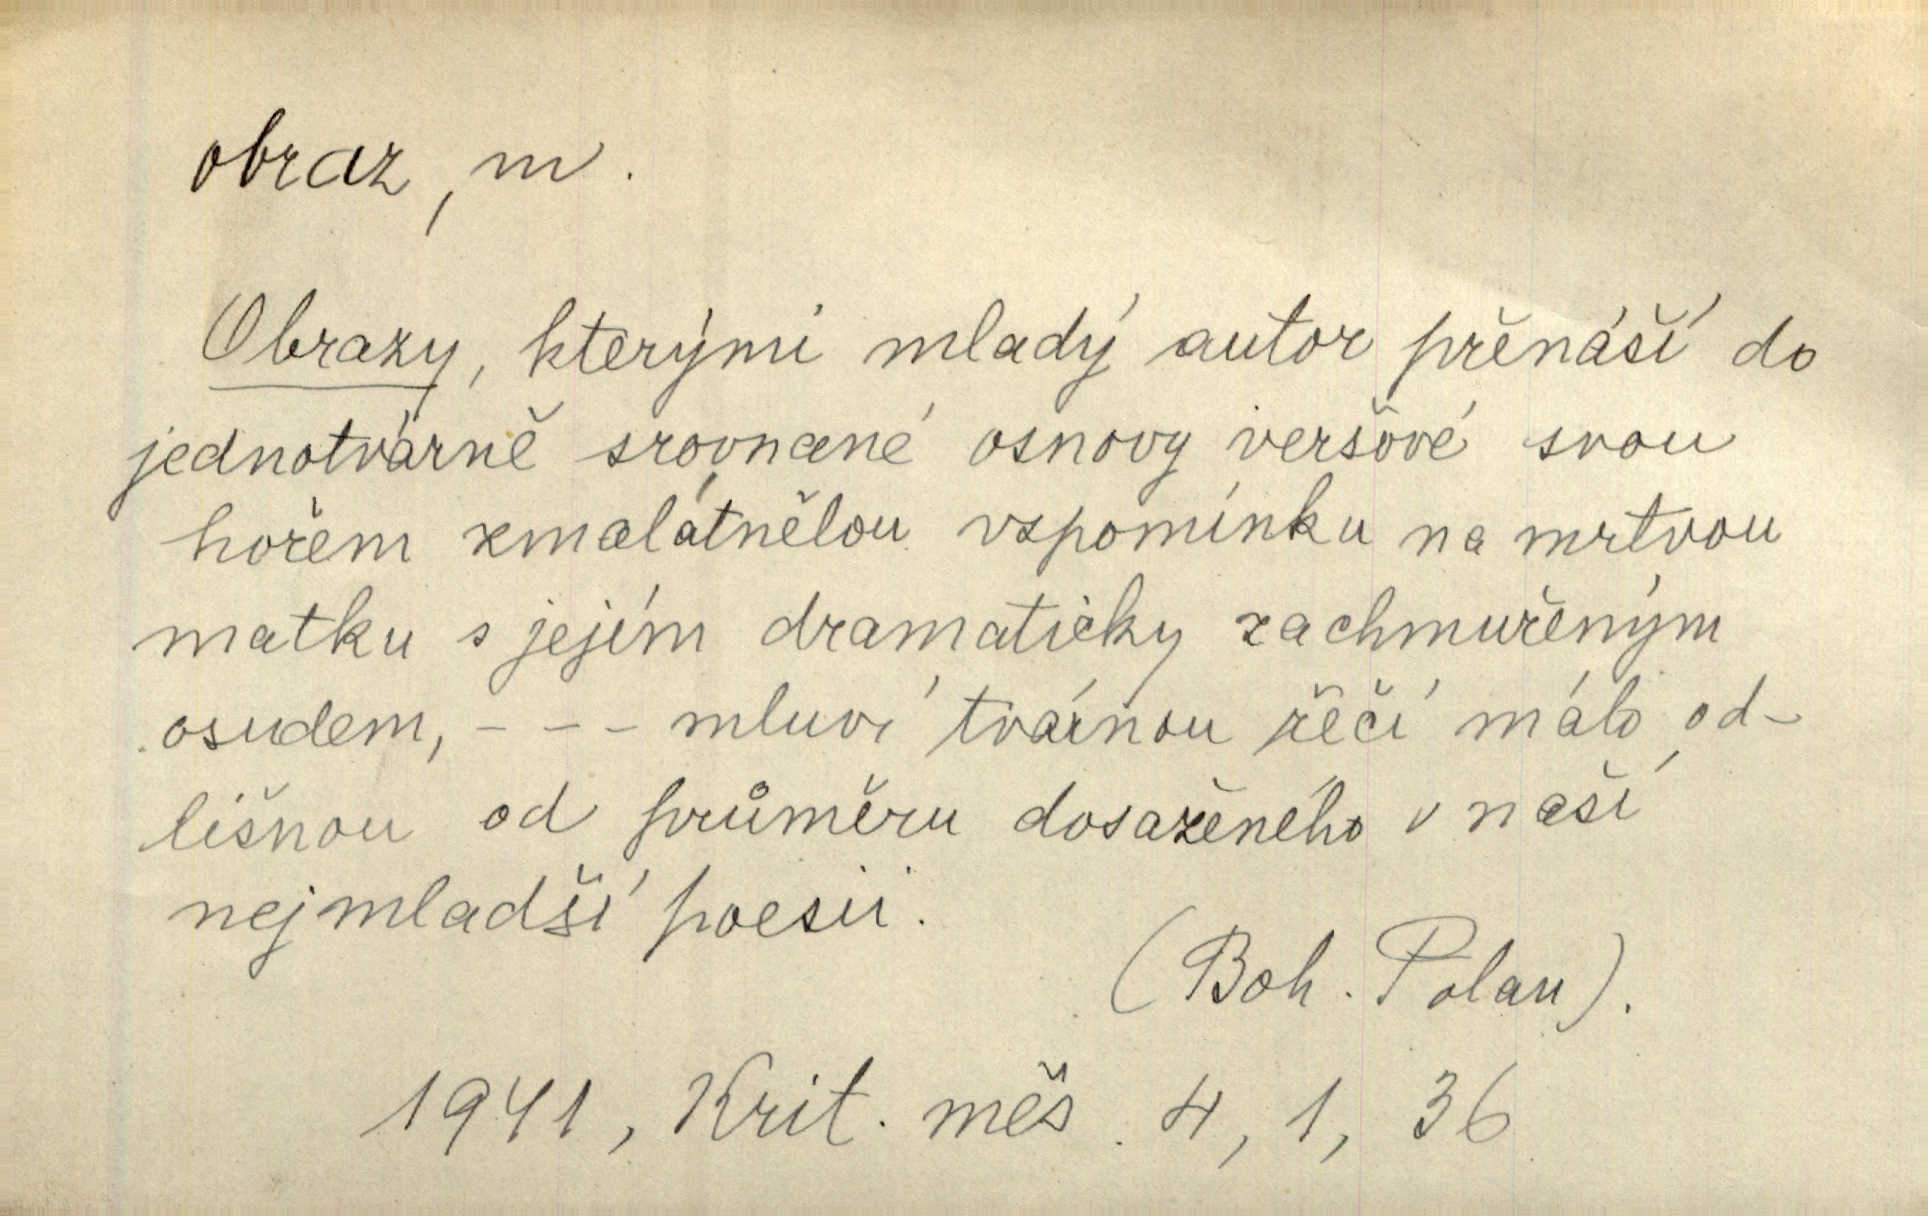 obraz, m.
Obrazy, kterými mladý autor přenáší do
jednotvárně srovnané osnovy veršové svou
hořem zmalátnělou vspomínku na mrtvou
matku s jejím dramaticky zachmuřeným
osudem, - - - mluví tvárnou řečí málo od-
lišnou od průměru dosaženého v naší
nejmladší poesii.
(Boh. Polan).
1941, Krit. měs. 4, 1, 36